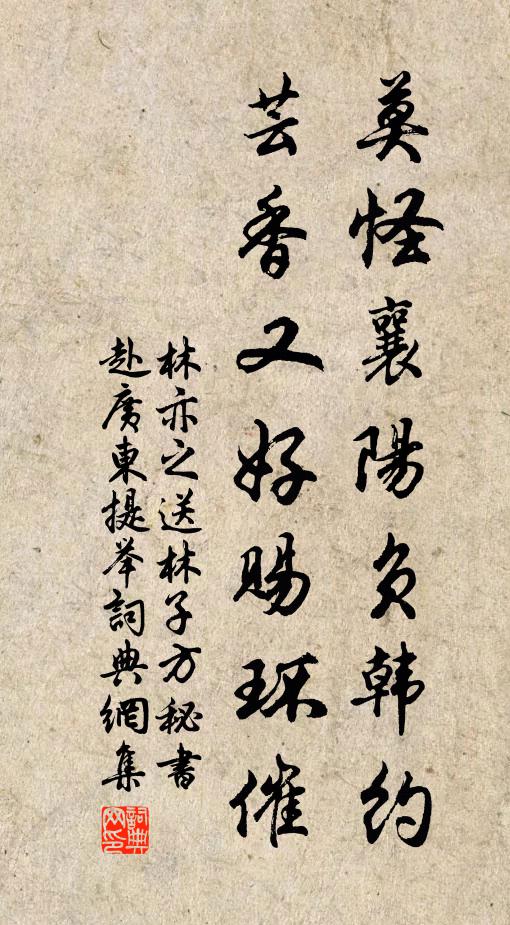 莫怪襄陽負韓約
芸香又好賜環催
林亦之送林子方秘書
赴廣東提举詞典網集
詞典网印